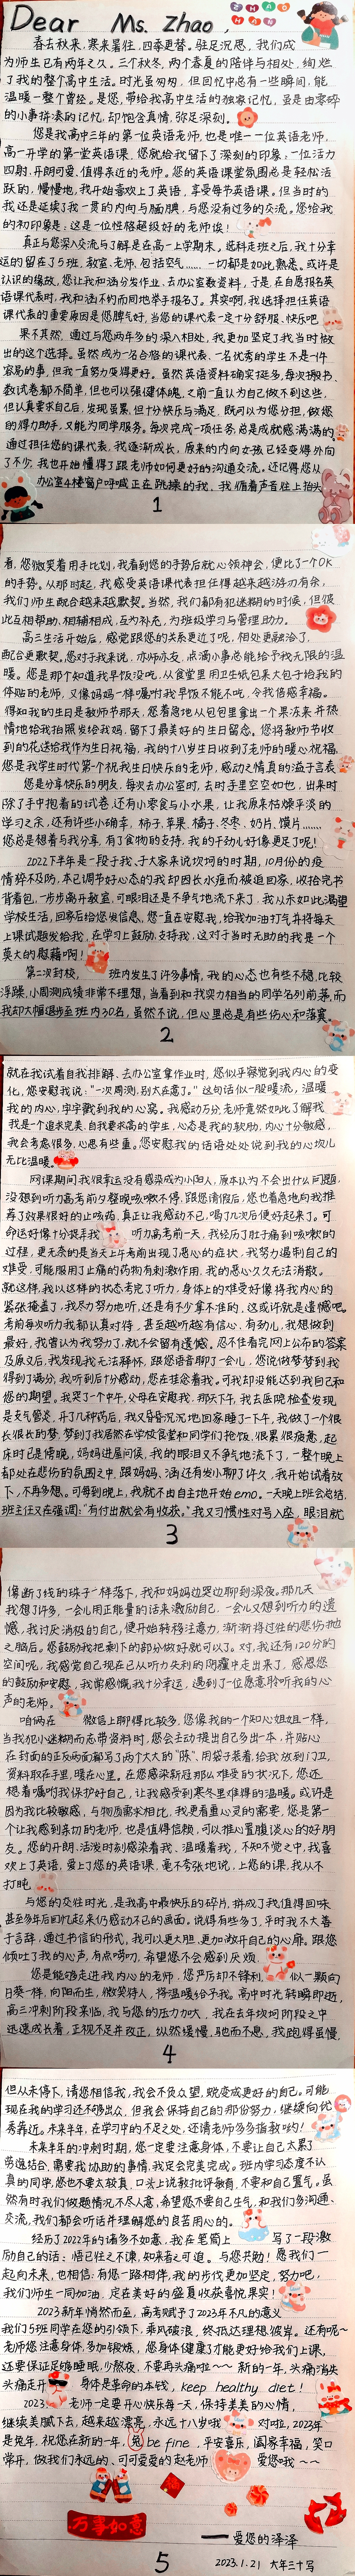 Dear Ms. Zhao,
春去秋来,寒来暑往,四季更替。驻足沉思,我们成
为师生已有两年之久。三个秋冬,两个春夏的陪伴与相处,绚烂
了我的整个高中生活。时光虽匆匆,但回忆中总有一些瞬间,能
温暖一整个曾经。是您,带给我高中生活的独家记忆,虽是由零碎
的小事拼凑的记忆,却饱含真情,弥足深刻。
您是我高中三年的第一位英语老师,也是唯一一位英语老师,
高一开学的第一堂英语课,您就给我留下了深刻的印象:一位活力
四射,开朗可爱,值得亲近的老师。您的英语课堂氛围总是轻松活
跃的,慢慢地,我开始喜欢上了英语,享受每节英语课。但当时的
我还是延续了我一贯的内向与腼腆,与您没有过多的交流。您给我
的初印象是:这是一位性格超很好的老师诶!
真正与您深入交流与了解是在高一上学期末。选科走班之后,我十分幸
运的留在了5班,教室、老师、包括空气……一切都是如此熟悉。或许是
认识的缘故,您让我和涵分发作业、去办公室数资料,于是在自愿报名英
语课代表时,我和涵不约而同地举手报名了。其实啊,我选择担任英语
课代表的重要原因是您脾气好,当您的课代表一定十分舒服、快乐吧
果不其然,通过与您两年多的深入相处,我更加坚定了我当时做
出的这个选择。虽然成为一名合格的课代表、一名优秀的学生不是一件
容易的事,但我一直努力变得更好。虽然英语资料确实挺多,每次搬书、
数试卷都不简单,但也可以强健体魄,之前一直认为自己做不到这些,
但认真要求自己后,发现虽累,但十分快乐与满足,既可以为您分担,做您
的得力助手,又能为同学服务。每次完成一项任务,总是成就感满满的
通过担任您的课代表,我逐渐成长,原来的内向女孩已经变得外向
了不少,我也开始懂得了跟老师如何更好的沟通交流。还记得您从
办公室4楼窗户呼喊正在跳操的我,我循着声音往上抬头
1
看,您微笑着用手比划,我看到您的手势后就心领神会,便比了一个OK
的手势。从那时起,我感受英语课代表担任得越来越游刃有余,
我们师生配合越来越默契。当然,我们都有犯迷糊的时候,但彼
此互相帮助,相辅相成,互为补充,为班级学习与管理助力。
高三生活开始后,感觉跟您的关系更近了呢,相处更融洽了,
配合更默契。您对于我来说,亦师亦友,点滴小事总能给予我无限的温
暖。您是那个知道我早饭没吃,从食堂里用卫生纸包裹大包子给我的
体贴的老师,又像妈妈一样嘱咐我早饭不能不吃,令我倍感幸福。
得知我的生日是教师节那天,您着急地从包包里拿出一个果冻来并热
情地给我拍照发给我妈,留下了最美好的生日留念。您将教师节收
到的花送给我作为生日祝福,我的十八岁生日收到了老师的暖心祝福,
您是我学生时代第一个祝我生日快乐的老师,感动之情真的溢于言表
您是分享快乐的朋友,每次去办公室时,去时手里空空如也,出来时
除了手中抱着的试卷,还有小零食与小水果,让我原来枯燥平淡的
学习之余,还有许些小确幸,柿子、苹果、橘子、冬枣、奶片、馍片……
您总是想着与我分享,有了食物的支持,我的干劲儿好像更足了呢!
2022下半年是一段于我、于大家来说坎坷的时期,10月份的疫
情猝不及防,本已调节好心态的我却因长水痘而被迫回家,收拾完书
背着包,一步步离开教室,可眼泪还是不争气地流下来,我从未如此渴望
学校生活,回家后给您发信息,您一直在安慰我,给我加油打气并将每天
上课试题发给我,在学习上鼓励、支持我,这对于当时无助的我是一个
莫大的慰藉啊!
第二次封校,班内发生了许多事情,我的心态也有些不稳,比较
浮躁,小周测成绩非常不理想,当看到和我实力相当的同学名列前茅,而
我却大幅退步至班内30名,虽然不说,但心里总是有些伤心和落寞。
2
就在我试着自我排解、去办公室拿作业时,您似乎察觉到我内心的变
化,您安慰我说:“一次周测,别太在意了。”这句话似一股暖流,温暖
我的内心,字字戳到我的心窝。我感动万分,老师竟然如此了解我
我是一个追求完美、自我要求高的学生,心态是我的软肋,内心十分敏感,
我会考虑很多,心思有些重。您安慰我的话语处处说到我的心坎儿
无比温暖。
网课期间我很幸运没有感染成为小阳人,原本认为不会出什么问题,
没想到听力高考前几整晚咳嗽不停,跟您请假后,您也着急地向我推
荐了效果很好的止咳药,真正让我感动不已,喝了几次后便好起来了。可
命运好像十分捉弄我,听力高考前一天,我经历了肚子痛到咳嗽的
过程,更无奈的是当天中考前出现了恶心的症状,我努力遏制自己的
难受,可能服用了止痛的药物有刺激作用,我的恶心久久无法消散。
就这样,我以这样的状态考完了听力,身体上的难受好像将我内心的
紧张掩盖了,我尽力努力地听,还是有不少拿不准的,这或许就是遗憾吧。
考前每次听力我都认真对待,甚至越听越有信心,有劲儿,我想做到
最好,我曾认为我努力了,就不会留有遗憾。忍不住看完网上公布的答案
及原文后,我发现我无法释怀,跟您语音聊了一会儿,您说做梦梦到我
得到了满分,我听到后十分感动,您在挂念着我。可我却没能达到我自己和
您的期望。我哭了一个中午,父母在安慰我,那天下午,我去医院检查发现
是支气管炎,开了几种药后,我又昏昏沉沉地回家睡了一下午,我做了一个很
长很长的梦,梦到了我居然在学校食堂和同学们抢饭,很累很疲惫,起
床时已是傍晚,妈妈进屋问候,我的眼泪又不争气地流下了,一整个晚上
都处在悲伤的氛围之中,跟妈妈、涵还有发小聊了许久,我开始试着放
下,不再多想。可每到晚上,我就不由自主地开始emo。一天晚上班会总结,
班主任又在强调:“有付出就会有收获。”我又习惯性对号入座,眼泪就
3
像断了线的珠子一样落下,我和妈妈边哭边聊到深夜。那几天
我想了许多,一会儿用正能量的话来激励自己,一会儿又想到听力的遗
憾,我讨厌消极的自己,便开始转移注意力,渐渐将过往的悲伤抛
之脑后。您鼓励我把剩下的部分做好就可以了。对,我还有120分的
空间呢,我感觉自己现在已从听力失利的阴霾中走出来了,感恩您
的鼓励和安慰。我常感慨,我十分幸运,遇到了一位愿意聆听我的心
声的老师。
咱俩在微信上聊得比较多,您像我的一个知心姐姐一样,
当我犯小迷糊而忘带资料时,您会主动提出自己多出一本,并贴心
在封面的正反两面都写了两个大大的“陈”,用袋子装着,给我放到门卫,
资料取在手里,暖在心里。在您感染新冠那么难受的状况下,您还
想着嘱咐我保护好自己,让我感受到寒冬里难得的温暖。或许是
因为我比较敏感,与物质需求相比,我更看重心灵的需要,您是第一
个让我感到亲切的老师,也是值得信赖,可以推心置腹谈心的好朋
友。您的开朗、活泼时刻感染着我、温暖着我,不知不觉之中,我喜
欢上了英语,爱上了您的英语课,毫不夸张地说,上您的课,我从不
打盹
与您的交往时光,是我高中最快乐的碎片,拼成了我值得回味
甚至多年后回忆起来仍感动不已的画面。说得有些多了,平时我不大善
于言辞,通过书信的形式,我可以更大胆、更加敞开自己的心扉。跟您
倾吐了我的心声,有点唠叨,希望您不会感到厌烦。
您是能够走进我内心的老师,您严厉却不锋利,似一颗向
日葵一样,向阳而生,微笑待人,将温暖给予我。高中时光转瞬即逝,
高三冲刺阶段来临,我与您的压力加大,我在去年坎坷阶段之中
迅速成长着,正视不足并改正,纵然缓慢,驰而不息,我跑得虽慢,
4
但从未停下,请您相信我,我会不负众望,蜕变成更好的自己。可能
现在我的学习还不够出众,但我会保持自己的那份努力,继续向优
秀靠近。未来半年,在学习中的不足之处,还请老师多多指教哟!
未来半年的冲刺时期,您一定要注意身体,不要让自己太累了
劳逸结合,需要我协助的事情,我定会完美完成。班内学习态度不认
真的同学,您也不要太较真,口头上说教批评教育,不要和自己置气。虽
然有时我们做题情况不尽人意,希望您不要自己生气,和我们多沟通、
交流,我们都会听话并理解您的良苦用心的。
经历了2022年的诸多不如意,我在笔筒上写了一段激
励自己的话:悟已往之不谏,知来者之可追。与您共勉!愿我们一
起向未来,也相信:有您一路相伴,我的步伐更加坚定,努力吧,
我们师生一同加油,定在美好的盛夏收获喜悦果实!
2023新年悄然而至,高考赋予了2023年不凡的意义
我们5班同学在您的引领下,乘风破浪,终抵达理想彼岸。还有呢~
老师您注意身体,多加锻炼,您身体健康了才能更好给我们上课,
还要保证足够睡眠,少熬夜,不要再头痛啦~~ 新的一年,头痛消失
头痛走开 身体是革命的本钱,keep healthy diet!
2023 老师一定要开心快乐每一天,保持美美的心情,
继续美腻下去,越来越漂亮,永远十八岁哦 对啦,2023年
是兔年,祝您在新的一年,be fine,平安喜乐,阖家幸福,笑口
常开,做我们永远的、可可爱爱的赵老师 爱您哦~~
万事如意
—— 爱您的泽泽
5
2023.1.21 大年三十写